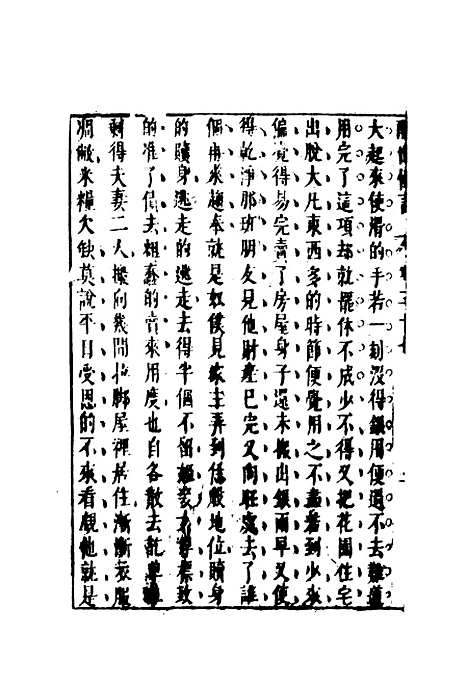 醒世恆言
大起來使滑的手若一刻沒得銀用便過不去難道
用完了這項却就擺休不成少不得又把花園住宅
出脫大凡東西多的時節便覺用之不盡若到少來
偏覺得易完賣了房屋身子還未搬出銀兩早又使
得乾淨那班朋友見他財產已完又向旺處去了誰
個再來趨奉就是奴僕見家主弄到恁般地位贖身
的贖身逃走的逃走去得半個不留姬妾標致
的准了債去粗蠢的賣來用度也自各散去訖單單
剩得夫妻二人搬向幾間拉脚屋裡居住漸漸衣服
凋敝米糧欠缺莫說平日受恩的不來看覷他就是